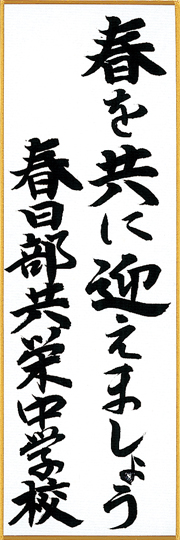 春を共に迎えましょう
春日部共栄中学校